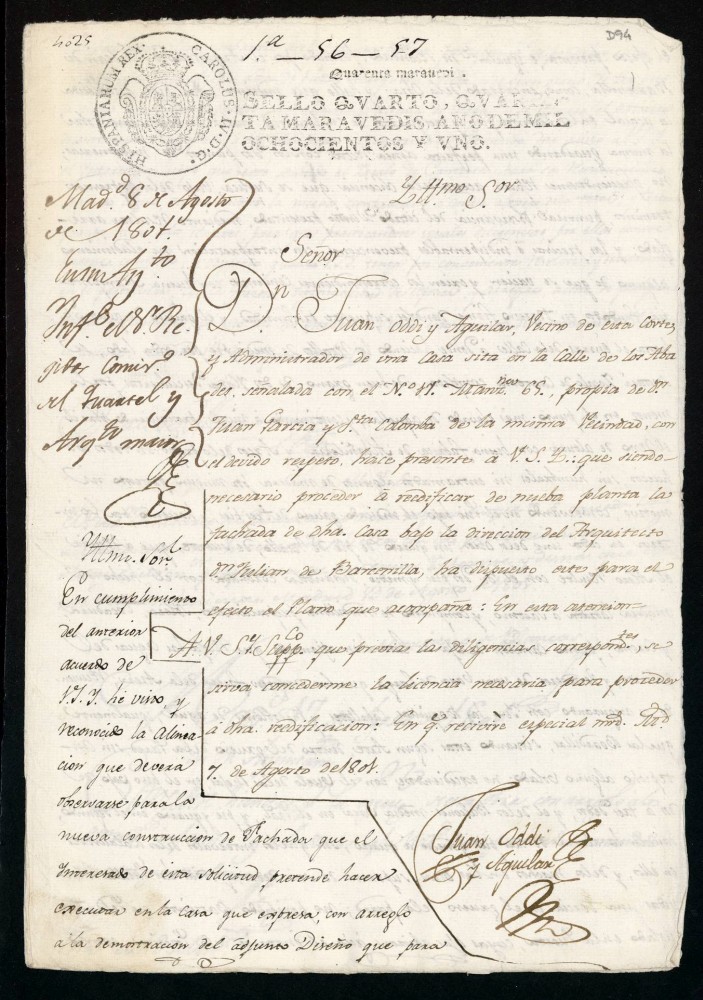 4025
D94
1.a - 56 - 57
HISPANIARUM REX. CAROLUS. IV. D. G.
Quarenta maravedi.
SELLO QVARTO, QVAREN
TA MARAVEDIS, AÑO DE MIL
OCHOCIENTOS Y VNO.
Yttmo. Sor.
Mad.d 8 de Agosto
de 1801.
En su Ay.to
Inf.e el S.r Re
gidor Comis.o
del Quartel y
Arq.to mayor
Señor
D.n Juan Oddi y Aguilar, Vecino de esta Corte,
y Administrador de una Casa sita en la Calle de los Aba
des, señalada con el N.o 17. Manz.na 65., propia de D.n
Juan Garcia y S.ta Colomba de la misma Vecindad, con
el devido respeto, hace presente a V.S.Y.: que siendo
necesario proceder à reedificar de nueba planta la
fachada de dha. Casa bajo la direccion del Arquitecto
D.n Julian de Barcenilla, ha dispuesto este para el
efecto el Plano que acompaña: En esta atencion
A V.S.Y. Supp.co que previas las diligencias correspond.tes, se
sirva concederme la licencia necesaria para proceder
à dha. reedificacion: En q.e recivire especial mrd. Mad.d
7. de Agosto de 1801.
Juan Oddi
y Aguilar
Yttmo. Sor.
En cumplimiento
del anterior
acuerdo de
V.S.Y. hé visto, y
reconocido la alinea
cion que deverá
observarse para la
nueva construccion de Fachada que el
Interesado de esta solicitud pretende hacer
executar en la casa que expresa, con arreglo
a la demostracion del adjunto Diseño que para